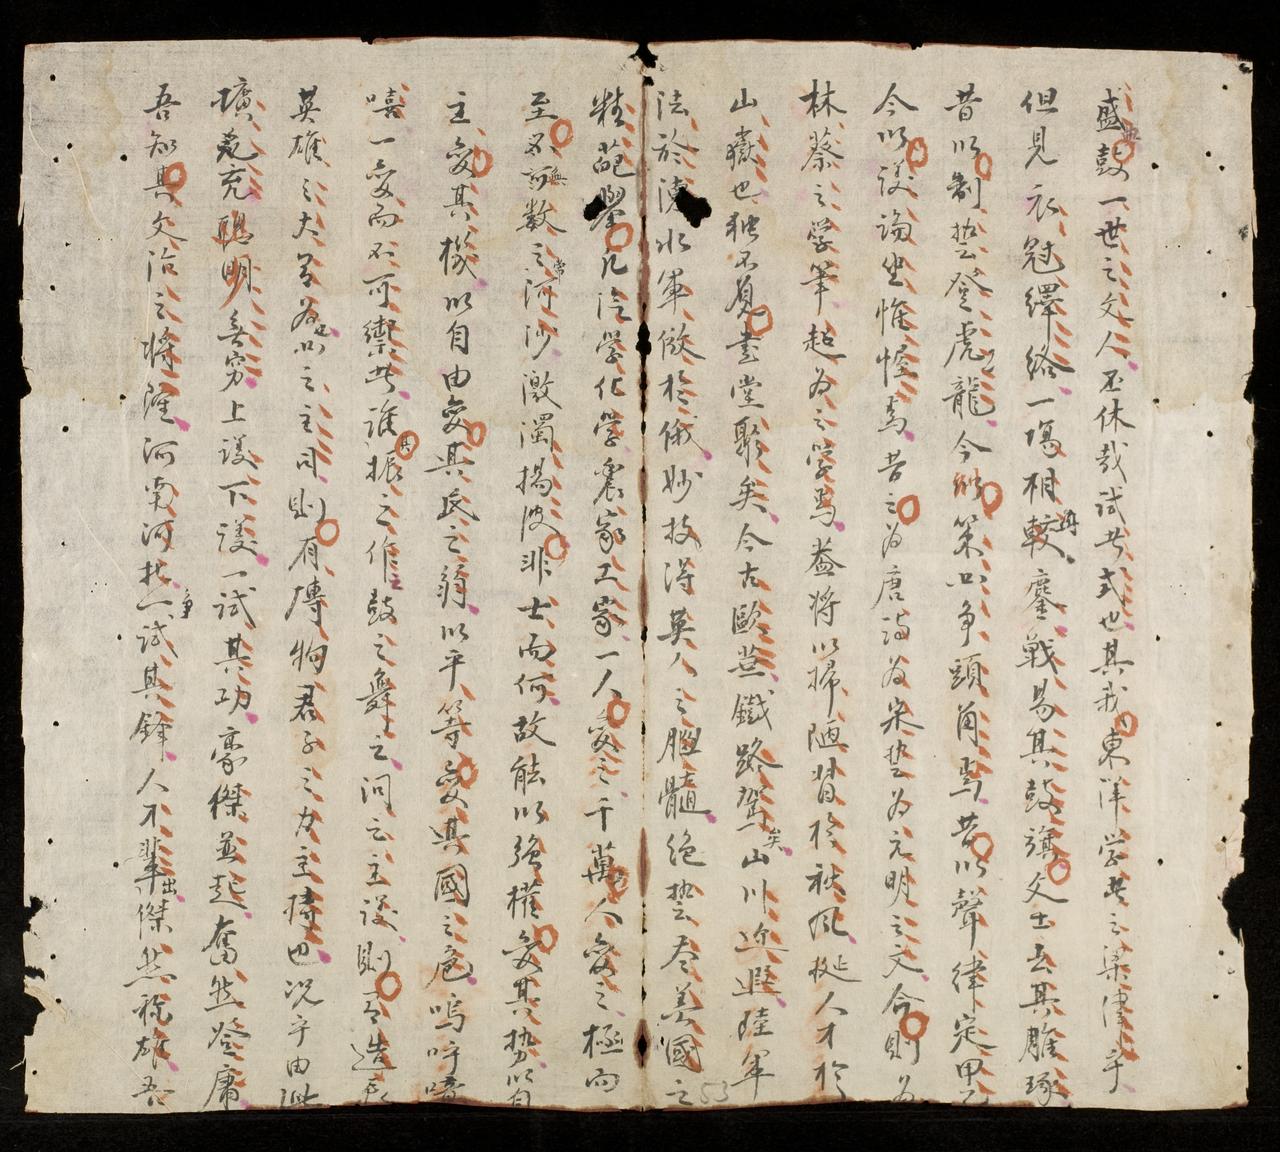 盛鼓一世之文人不休哉試者式也其我東洋学者之梁津乎
但見衣冠繹絡一場相較鏖戰易其鼓旗文士去其雕琢
昔以制芸登虎龍今以策以争頭角焉昔以聲律定甲乙
今以議論坐帷幄焉昔之為唐詩為宋芸為元明之文今則为
林蔡之学筆起为之学焉蓋將以掃陋習於秋風挺人才於
山嶽也独不見書堂聚矣今古歐亞鐵路駕矣山川近遐陸軍
法於凌水軍倣於俄妙技得英人之腦髓絶芸尽美國之
精葩舉凡汽学化学農家工家一人変之千萬人変之極而
至不可数之河沙激濁揚波非士而何故能以強權変其勢以自
主変其機以自由変其民之弱以平等変其國之危嗚呼噫
嘻一変而不可禦者誰其振之作之鼓之舞之问之主議則有造
英雄之大首为也以之主司則有博物君子之力主持也况乎由此
擴充聰明無穷上議下議一試其功豪傑並起奮然登庸
吾知其文治之將隆河南河北一試其鋒人才輩出傑然称雄吾
53